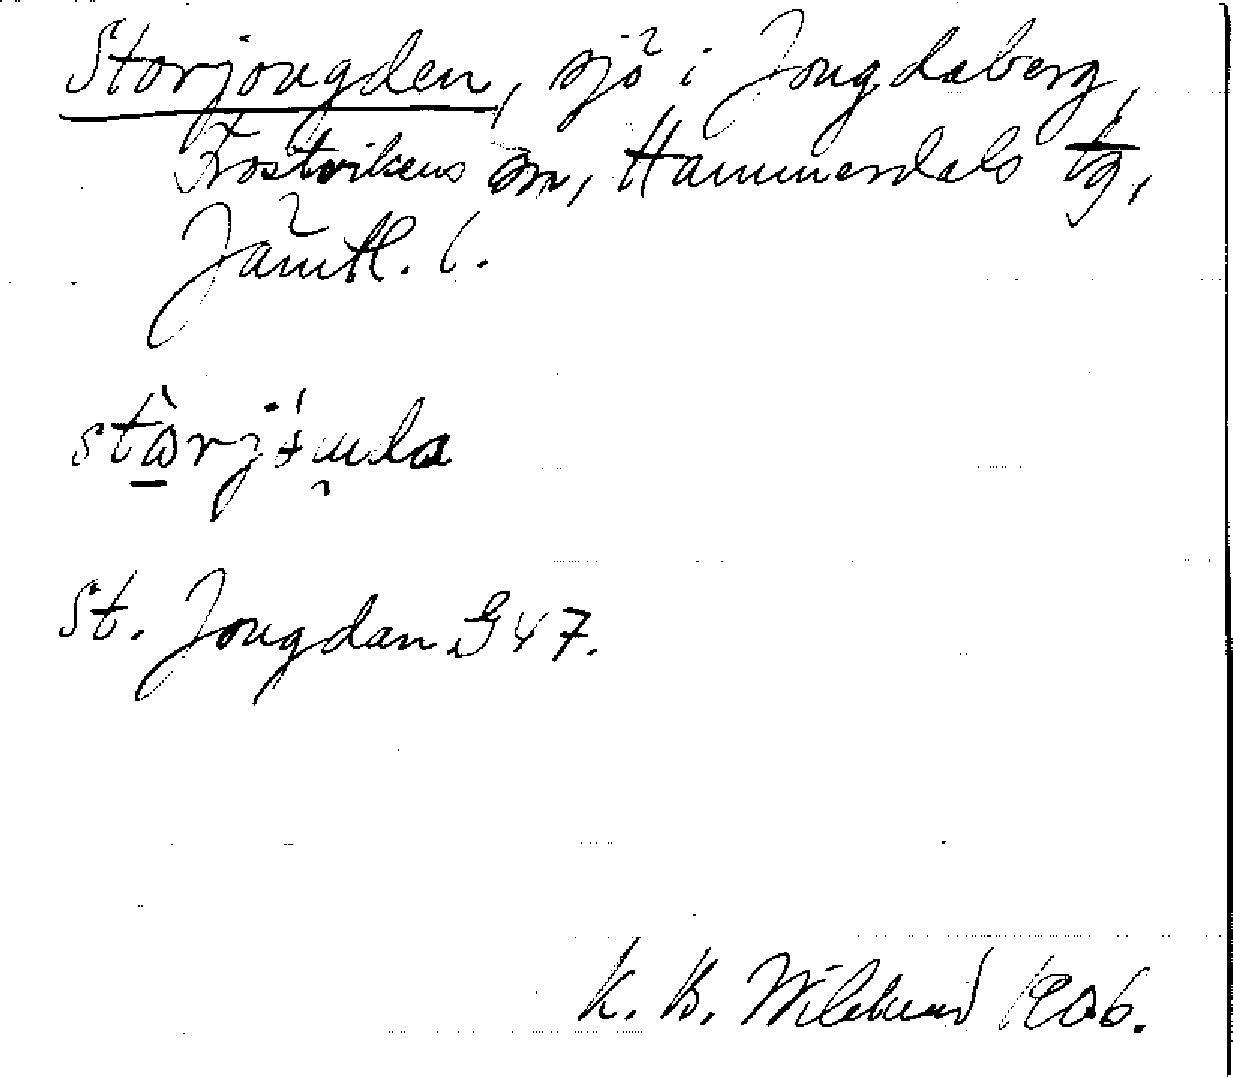 Storjougden, sjö i Jougdaberg,
Frostvikens sn, Hammerdals tg,
Jämtl. l.
St. Jougdan G 47.
K. B. Wiklund 1906.